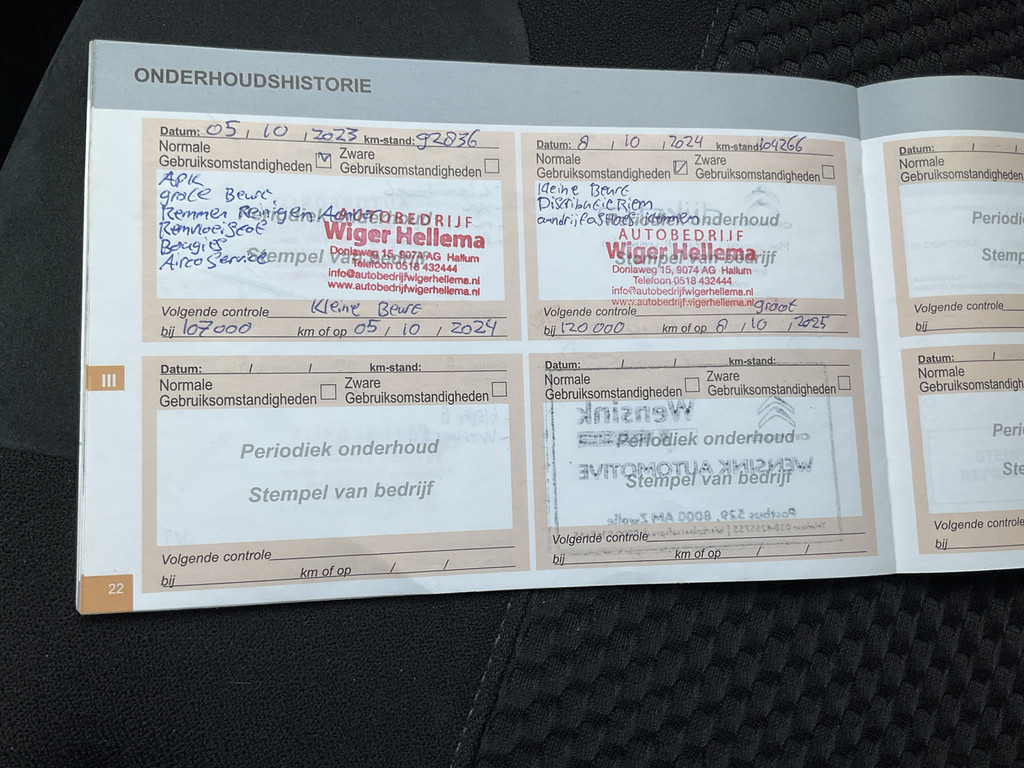 ONDERHOUDSHISTORIE
Datum: 05 / 10 / 2023 km-stand: 92836
Normale Gebruiksomstandigheden
Zware Gebruiksomstandigheden
APK
grote Beurt.
Remmen Reinigen
Remvloeistof
Bougies
Airco Service
Stempel van bedrijf
AUTOBEDRIJF
Wiger Hellema
Doniaweg 15, 9074 AG Hallum
Telefoon 0518 432444
info@autobedrijfwigerhellema.nl
www.autobedrijfwigerhellema.nl
Volgende controle Kleine Beurt
bij 107000 km of op 05 / 10 / 2024
Datum: 8 / 10 / 2024 km-stand: 104266
Normale Gebruiksomstandigheden
Zware Gebruiksomstandigheden
Kleine Beurt
Distributie Riem
Periodiek onderhoud
Stempel van bedrijf
AUTOBEDRIJF
Wiger Hellema
Doniaweg 15, 9074 AG Hallum
Telefoon 0518 432444
info@autobedrijfwigerhellema.nl
www.autobedrijfwigerhellema.nl
Volgende controle groot
bij 120 000 km of op 8 / 10 / 2025
Datum: / /
Normale
Gebruiksomstandigheden
Periodi
Stemp
Volgende controle
bij
III
Datum: / / km-stand:
Normale Gebruiksomstandigheden
Zware Gebruiksomstandigheden
Periodiek onderhoud
Stempel van bedrijf
Volgende controle
bij km of op / /
Datum: / / km-stand:
Normale Gebruiksomstandigheden
Zware Gebruiksomstandigheden
Periodiek onderhoud
Stempel van bedrijf
Wensink
WENSINK AUTOMOTIVE
Postbus 529, 8000 AM Zwolle
Volgende controle
bij km of op / /
Datum: /
Normale
Gebruiksomstandigh
Peri
Ste
Volgende controle
bij
22